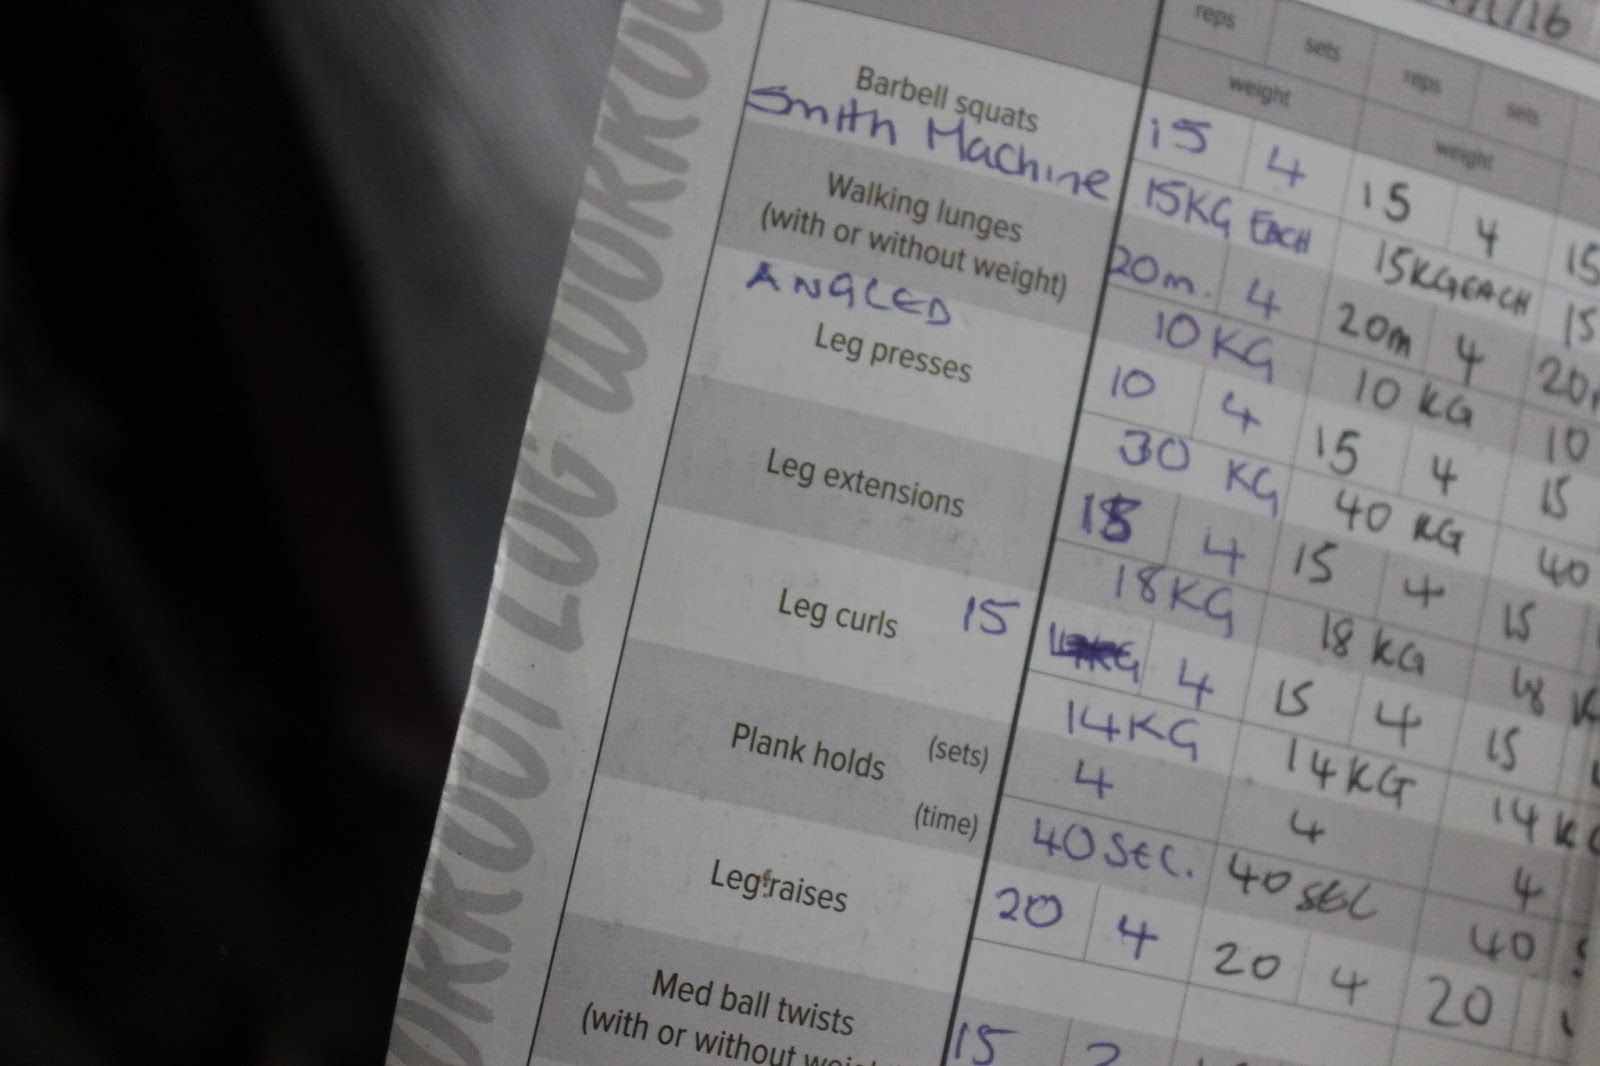 WORKOUT LOG WORKOUT
reps sets reps sets
weight weight
Barbell squats 15 4 15 4 15
Smith Machine 15KG EACH 15KG EACH 15
Walking lunges 20m. 4 20m 4
(with or without weight) 10 KG 10 KG 10
ANGLED
Leg presses 10 4 15 4 15
30 KG 40 KG 40
Leg extensions 15 4 15 4 15
18KG 18 KG 18
Leg curls 15 4 15 4 15
14KG 14KG 14
Plank holds (sets) 4 4 4
(time) 40 SEC. 40 SEC 40
Leg raises 20 4 20 4 20
Med ball twists 15
(with or without